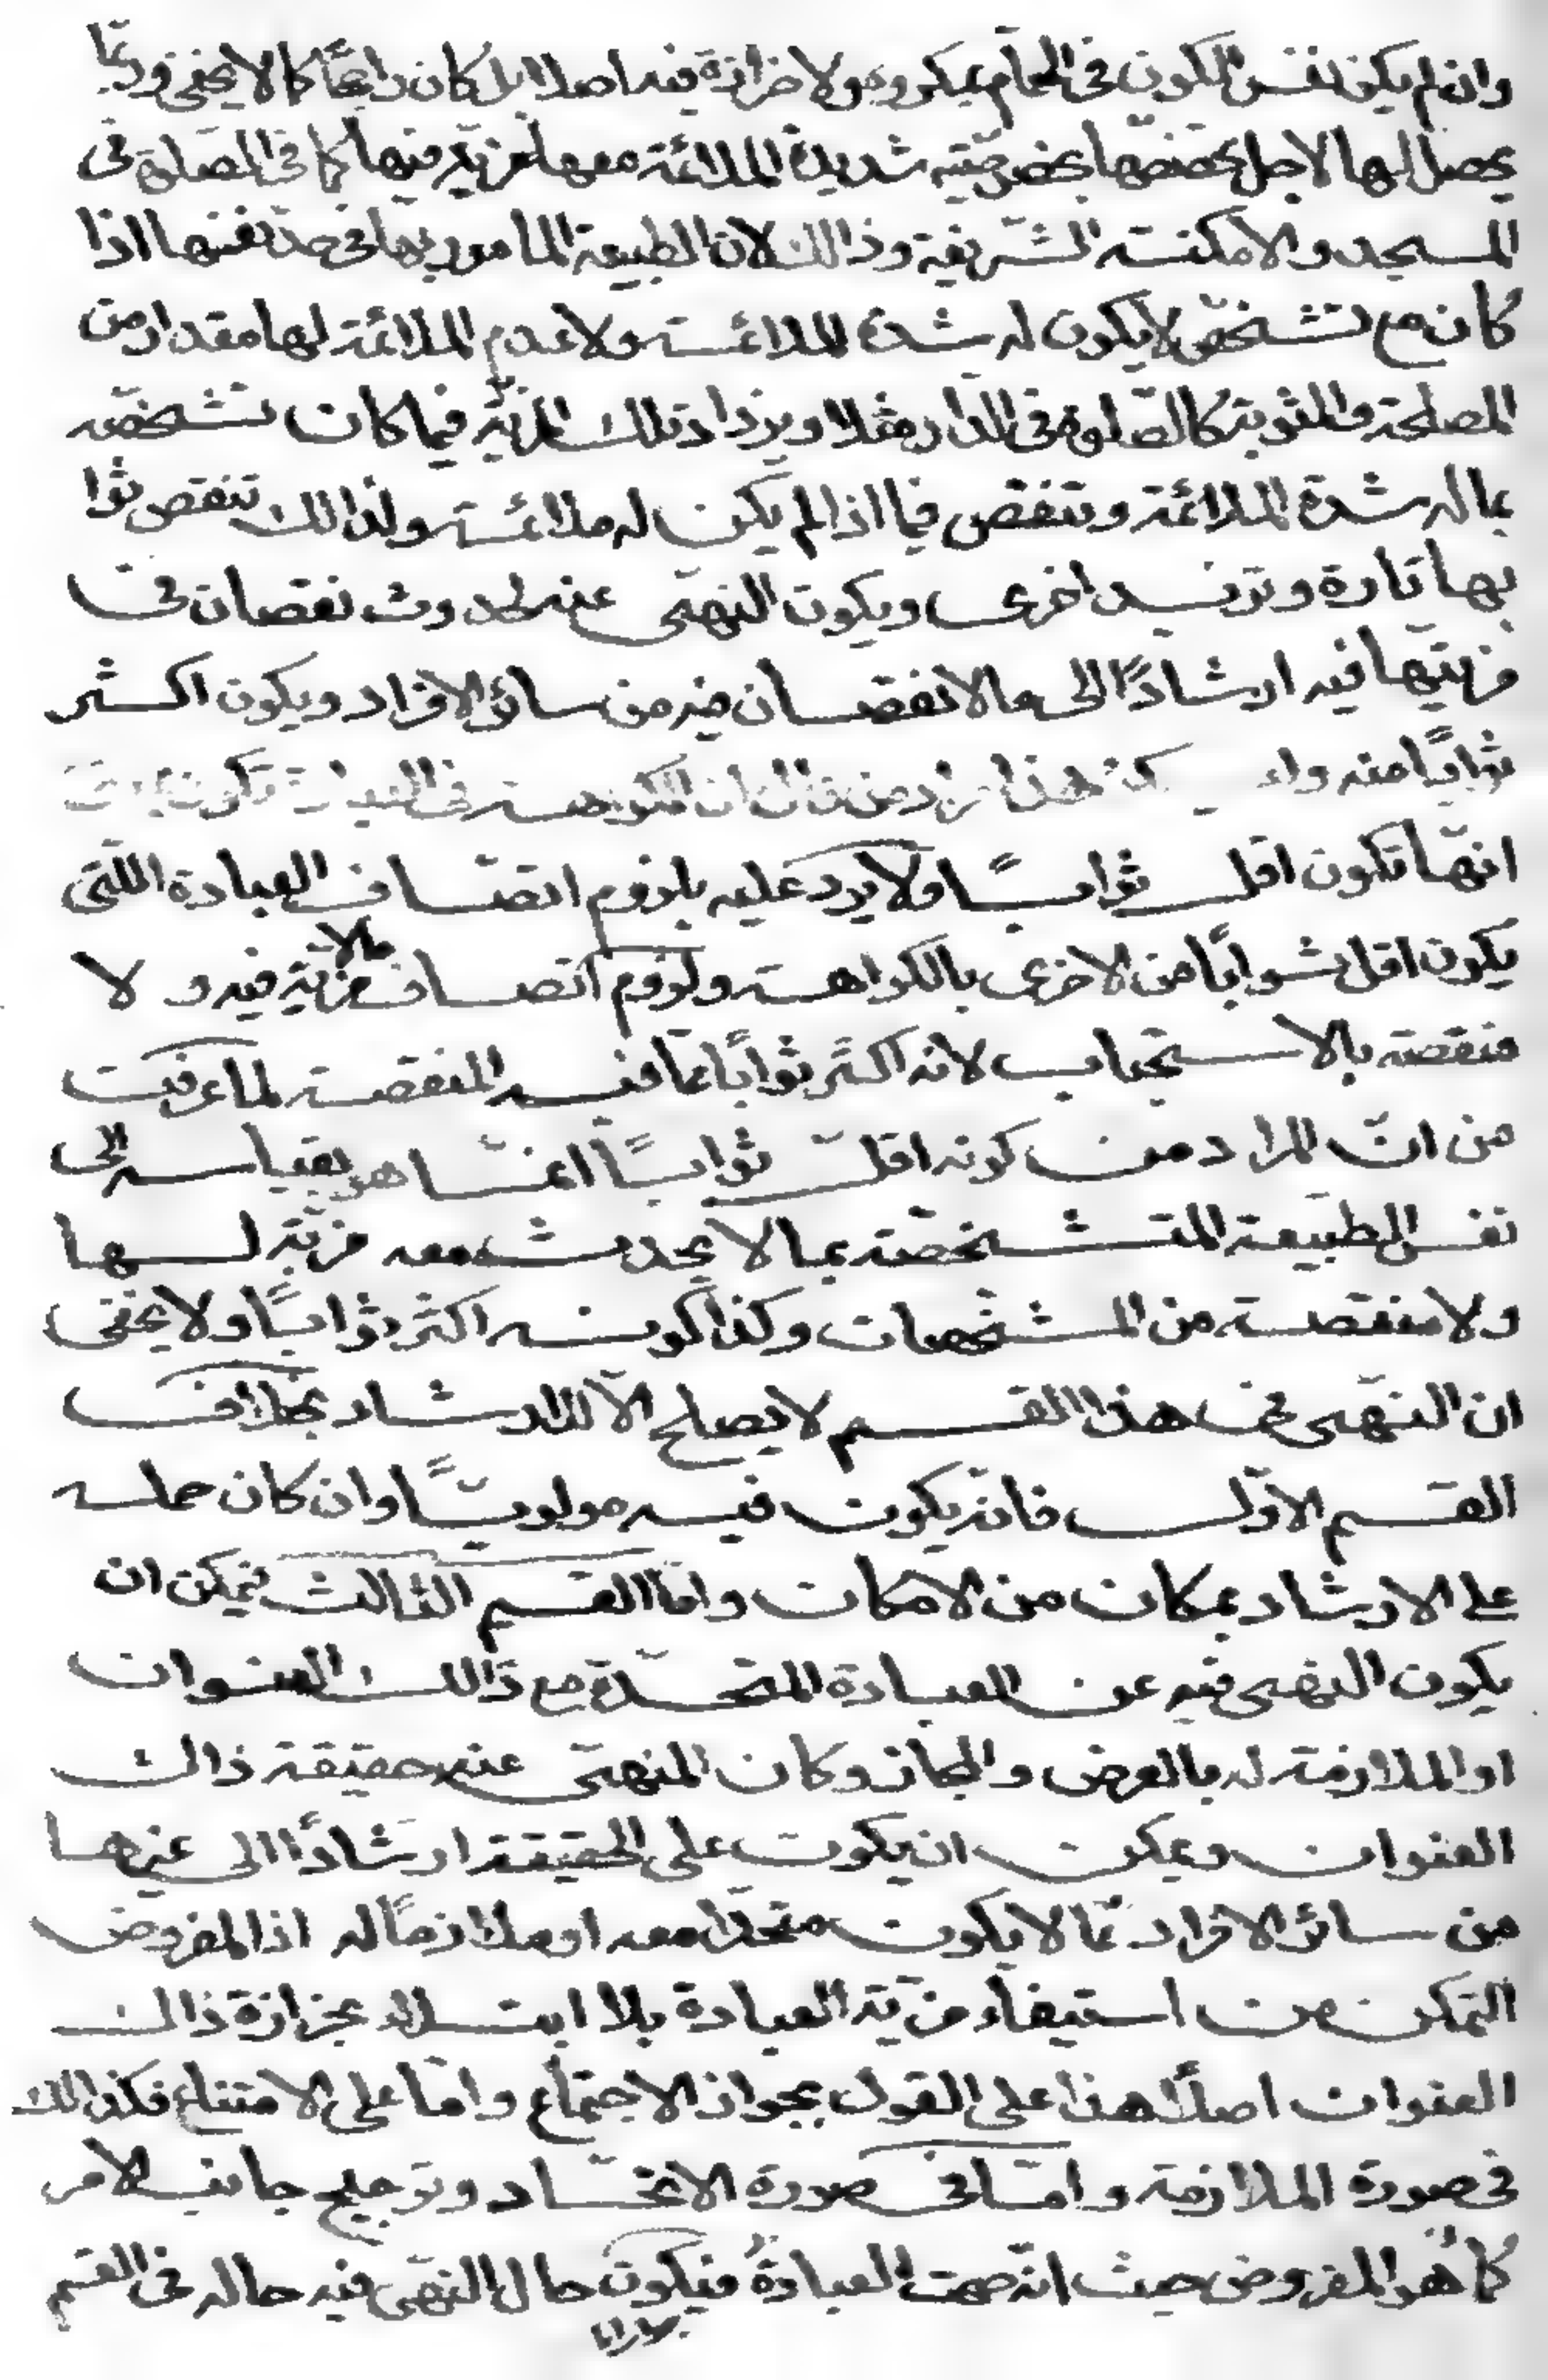 وان لم يكن نفس الكون فى الحمّام بمكروه ولا حزازة فيه اصلا بل كان راجحًا كما لا يخفى وربّما
يحصل لها لاجل تخصّصها بخصوصيّته شديدة الملائمة معها مزيّة فيها كما فى الصّلوة فى
المسجد والامكنته الشّريفة وذالك لان الطبيعة المأمور بها فى حدّ نفسها اذا
كان مع تشخّص لا يكون له شدة الملائمة ولا عدم الملائمة لها مقدار من
المصلحة والمثوبة كالصّلوة فى الدار مثلا ويزداد تلك المزيّة فيما كان تشخّصه
بماله شدة الملائمة وتنقص فيما اذا لم يكن له ملائمة ولذالك تنقص ثوا
بها تارة وتزيد اخرى ويكون النهى عنه لحدوث نقصان فى
مزيّتها فيه ارشادًا الى ما لا نقصان فيه من سائر الافراد ويكون اكثر
ثوابًا منه هذا مراد من قال ان الكراهة فى العبادة تكون بمعنى
انهّا تكون اقل ثوابًا ولا يرد عليه بلزوم اتصّاف العبادة اللّتى
يكون اقل ثوابًا من الاخرى بالكراهة ولزوم اتصاف مالا مزيّة فيه و لا
منقصة بالاستحباب لانه اكثر ثوابًا عمّا فيه المنقصة لما عرفت
من انّ المراد من كونه اقلّ ثوابًا انمّا هو بقياسه الى
نفس الطبيعة المتشخّصة بما لا يحدث معه مزيّة لها
ولا منقصة من المشخّصات وكذا كونه اكثر ثوابًا ولا يخفى
ان النهى عن هذا القسم لا يصلح الّا للارشاد بخلاف
القسم الاوّل فانه يكون فيه مولويًّا وان كان حمله
على الارشاد بمكان من الامكان وامّا القسم الثالث فيمكن ان
يكون النهى فيه عن العبادة المتحّدة مع ذالك العنوان
او الملازمة له بالعرض والمجاز وكان المنهى عنه حقيقة ذاك
العنوان ويمكن ان يكون على الحقيقة ارشادًا الى غيرها
من سائر الافراد ممّا لا يكون متحدا معه او ملازمًا له اذا المفروض
التمكن من استيفاء مزيّة العبادة بلا ابتلاء بحزازة ذالك
العنوان اصلًا هذا على القول بجواز الاجتماع وامّا على الامتناع فكذالك
فى صورة الملازمة وامّا فى صورة الاتحّاد وترجيح جانب الامر
كما هو المفروض حيث انّه صحت العبادة فيكون حال النهى فيه حاله فى القسم